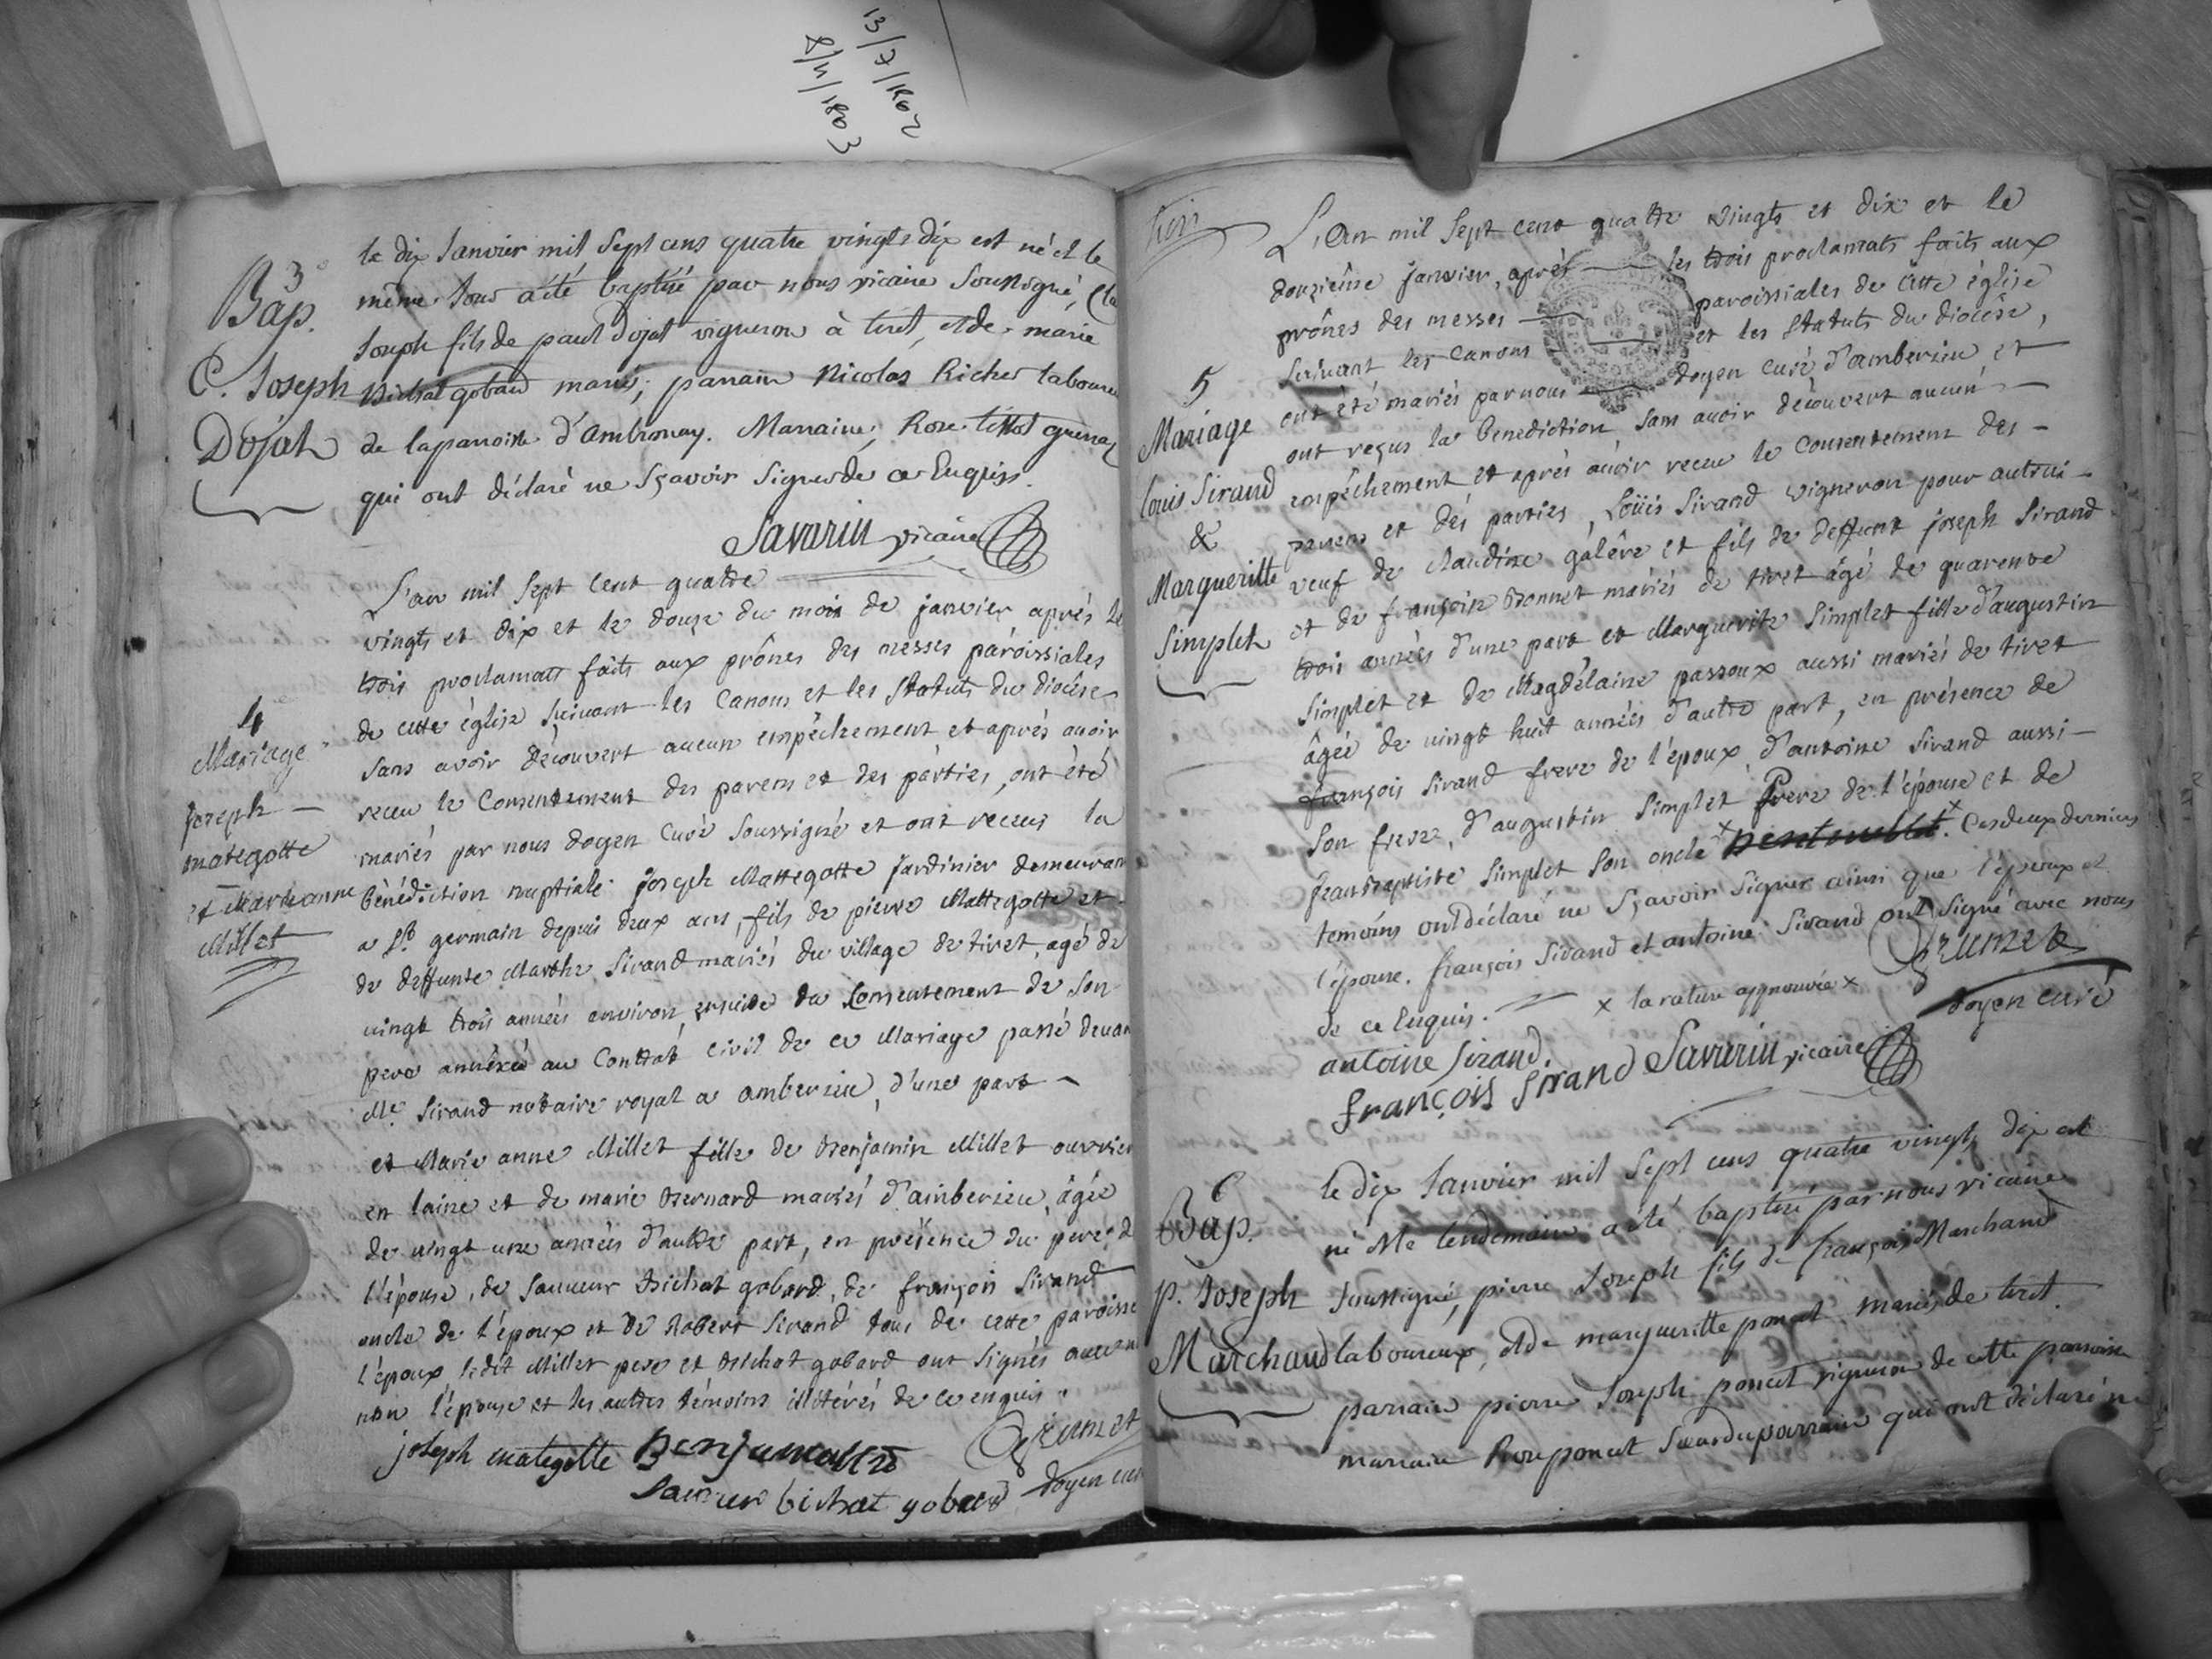 13/7/1802
8/4/1803
3°
Bap.
C. Joseph
Dojat
le dix Janvier mil Sept cens quatre vingts dix est né et le
même Jour a été baptisé par nous vicaire Soussigné, Cla
Joseph fils de paul Dojat vigneron à tiret, et de marie
Bichat gobard mariés; parrain Nicolas Richer laboureu
de la paroisse d'Ambronay. Marraine, Rose tissot grenaz
qui ont déclaré ne Sçavoir Signer de ce Enquis.
Savarin vicaire
4
Mariage
joseph
mategotte
et Marieanne
Millet
L'an mil Sept Cent quatre
vingts et dix et le douze du mois de janvier après le
trois proclamats faits aux prônes des messes paroissiales
de cette église suivant les Canons et les Statuts du diocèse
sans avoir découvert aucun empêchement et après avoir
receu le Consentement des parens et des parties, ont été
mariés par nous doyen Curé soussigné et ont receus la
bénédiction nuptiale joseph Mattegotte jardinier demeuran
a St. germain depuis deux ans, fils de pierre Mattegotte et
de deffunte Marthe Sirand mariés du village de tiret, agé de
vingt trois années environ, ensuite du Consentement de son
pere annéxée au Contrat civil de ce Mariage passé devan
Me. Sirand notaire royal a amberieu, d'une part
et Marie anne Millet fille de Benjamin Millet ouvrier
en laine et de marie Bernard mariés d'amberieu, âgée
de vingt une années d'autre part, en présence du pere d
l'épouse, de Sauveur Bichat gobard, de françois Sirand
oncle de l'époux et de Robert Sirand tous de cette paroisse
l'époux ledit Millet pere et Bichat gobard ont signés avec n
non l'épouse et les autres témoins illitérés de ce enquis.
joseph mategotte
Sauveur bichat gobard
doyen cur
5
Mariage
louis Sirand
&
Margueritte
Simplet
L'An mil Sept cent quatre vingts et dix et le
douzième janvier, après les trois proclamats faits aux
prônes des messes paroissiales de cette église
Suivant les Canons et les Statuts du diocèse,
ont été mariés par nous doyen curé d'amberieu et
ont reçus la benediction sans avoir découvert aucun
empêchement et après avoir receu le Consentement des
parens et des parties, Loüis Sirand vigneron pour autrui
veuf de Claudine galêre et fils de deffunt joseph Sirand
et de françoise Bonnet mariés de tiret âgé de quarente
trois années d'une part et Marguerite Simplet fille d'augustin
Simplet et de Magdelaine passoux aussi mariés de tiret
âgée de vingt huit années d'autre part, en présence de
françois Sirand frere de l'époux, d'antoine Sirand aussi
son frere, d'augustin Simplet frere de l'épouse et de
jean Baptiste Simplet son oncle x x. Ces deux derniers
temoins ont déclaré ne Sçavoir Signer ainsi que l'époux et
l'épouse. françois Sirand et antoine Sirand ont signé avec nous
de ce Enquis. x la rature approuvée x
doyen curé
antoine Sirand.
françois Sirand Savarin vicaire
6
Bap.
p. Joseph
Marchand
le dix Janvier mil Sept cens quatre vingts dix est
né et le lendemain a été baptisé par nous vicaire
Soussigné, pierre Joseph fils de françois Marchand
laboureur, et de margueritte poncet mariés de tiret.
parrain pierre Joseph poncet vigneron de cette paroisse
marraine Rose poncet Sœur du parrain qui ont déclaré ne